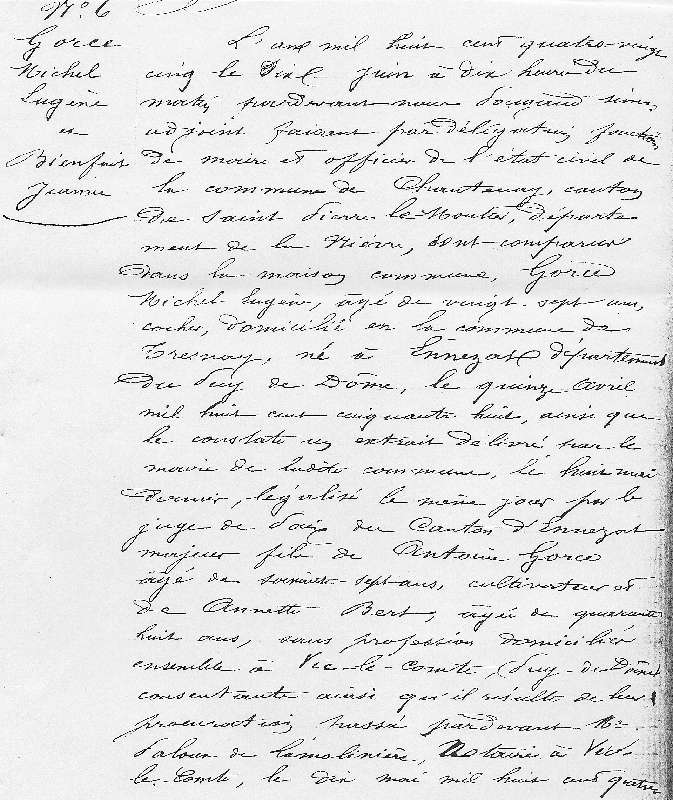 N° 6
Gorce
Michel
Eugène
et
Bienfait
Jeanne
L'an mil huit cent quatre-vingt
cinq le dix juin à dix heures du
matin pardevant nous
adjoint faisant par délégation fonctions
de maire et officier de l'état civil de
la commune de Chantenay, canton
de Saint Pierre-le-Moutier, départe
ment de la Nièvre, sont comparus
dans la maison commune, Gorce
Michel Eugène, âgé de vingt-sept ans,
cocher, domicilié en la commune de
Tresnay, né à Ennezat département
du Puy de Dôme, le quinze avril
mil huit cent cinquante huit, ainsi que
le constate un extrait délivré par le
maire de ladite commune, le huit mai
dernier, légalisé le même jour par le
juge de paix du Canton d'Ennezat
majeur fils de Antoine Gorce
âgé de soixante-sept ans, cultivateur et
de Annette Bert, âgée de quarante
huit ans, sans profession domiciliés
ensemble à Vic-le-Comte, (Puy-de-Dôme)
consentants ainsi qu'il résulte de leur
procuration passée pardevant Me
de Lamolinière, Notaire à Vic-
le-Comte, le dix mai mil huit cent quatre